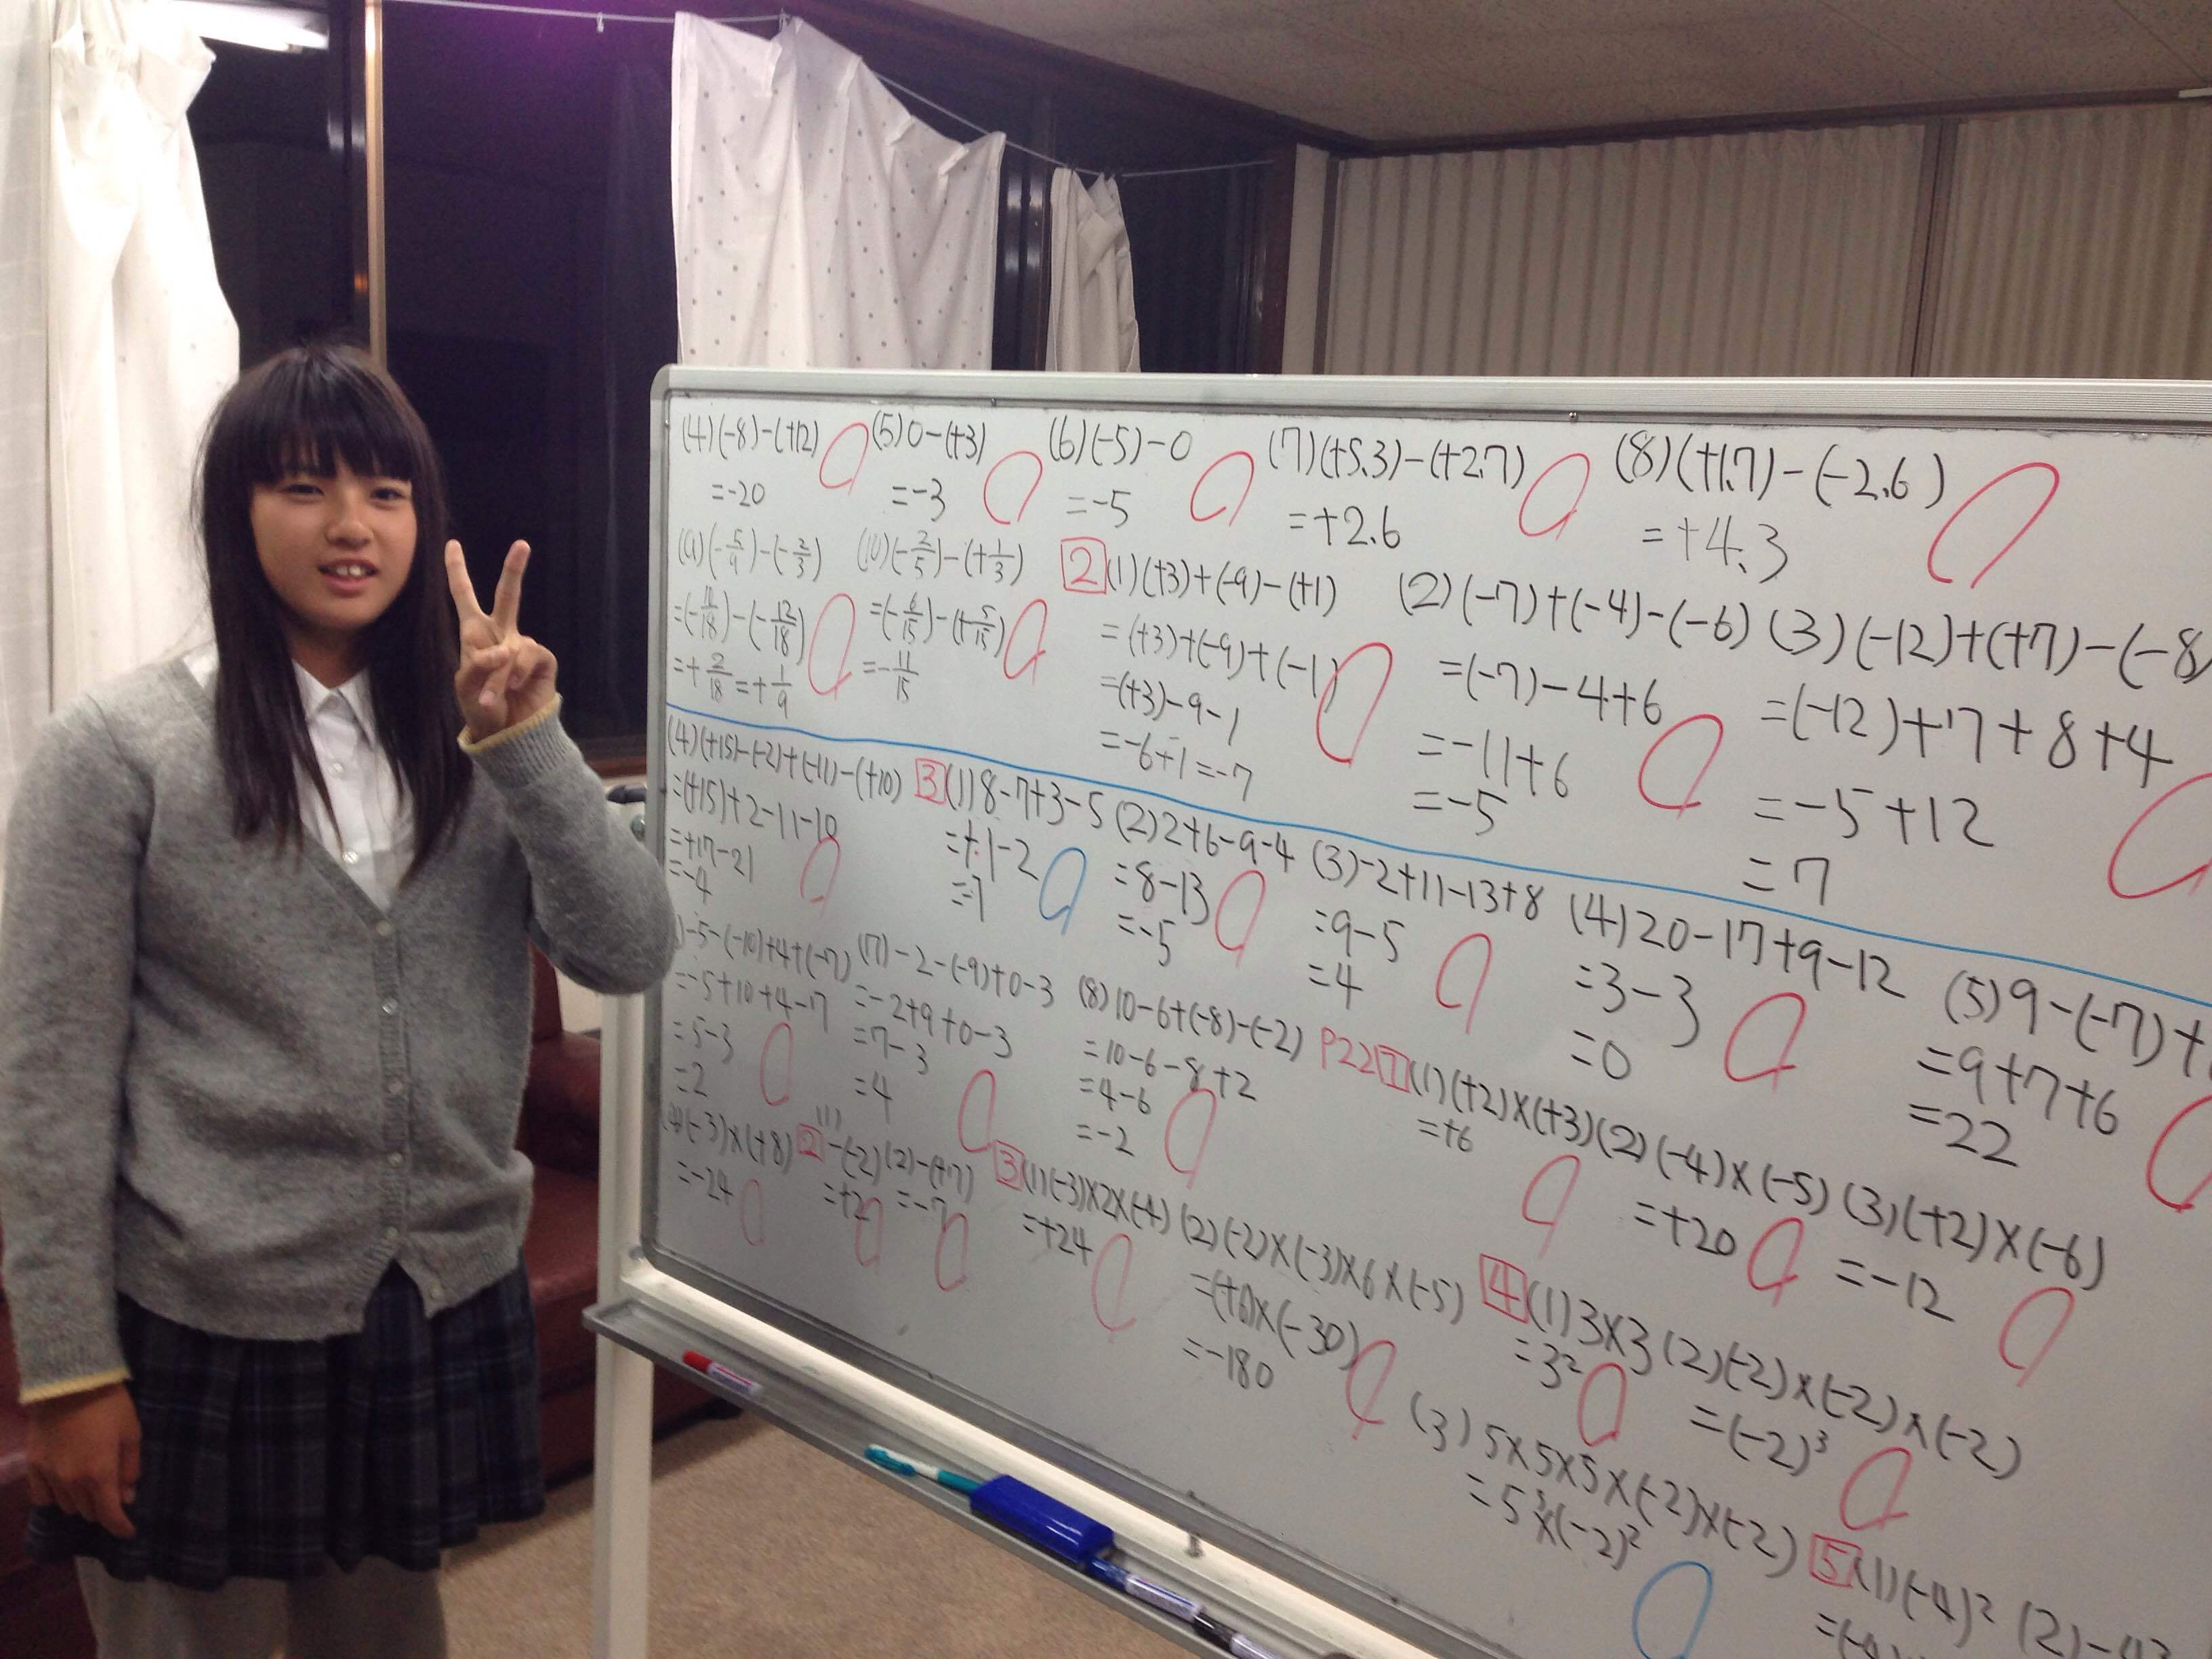 (4)(-8)-(+12) (5)0-(+3) (6)(-5)-0 (7)(+5.3)-(+2.7) (8)(+1.7)-(-2.6)
=-20 =-3 =-5 =+2.6 =+4.3
(9)(-5/9)-(-2/3) (10)(-2/5)-(+1/3) 2 (1)(+3)+(-9)-(+1) (2)(-7)+(-4)-(-6) (3)(-12)+(+7)-(-8)
-(-12/18) =(-6/15)-(+5/15) =(+3)+(-9)+(-1) =(-7)-4+6 =(-12)+7+8+4
=+2/18=+1/9 =-11/15 =(+3)-9-1 =-11+6 =-5+12
=-6+1=-7 =-5 =7
(4)(+15)-(-2)+(-11)-(+10) 3 (1)8-7+3-5 (2)2+6-9-4 (3)-2+11-13+8 (4)20-17+9-12 (5)9-(-7)+
=(+15)+2-11-10 =+1-2 =8-13 =9-5 =3-3 =9+7+6
=+17-21 =-1 =-5 =4 =0 =22
=-4
-5-(-10)+4+(-7) (7)-2-(-9)+0-3 (8)10-6+(-8)-(-2) P22 1 (1)(+2)×(+3) (2)(-4)×(-5) (3)(+2)×(-6)
=-5+10+4-7 =-2+9+0-3 =10-6-8+2 =+6 =+20 =-12
=5-3 =7-3 =4-6
=2 =4 =-2
(4)(-3)×(+8) 2 (1)-(-2) (2)-(+7) 3 (1)(-3)×2×(-4) (2)(-2)×(-3)×6×(-5) 4 (1)3×3 (2)(-2)×(-2)×(-2)
=-24 =+2 =-7 =+24 =(+6)×(-30) =3² =(-2)³
=-180
(3)5×5×5×(-2)×(-2) 5 (1)(-4)² (2)-4²
=5³×(-2)²